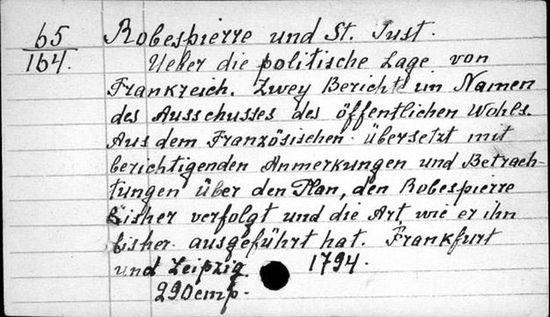 65
164.
Robespierre und St. Just.
Ueber die politische Lage von
Frankreich. Zwey Berichte im Namen
des Ausschusses des öffentlichen Wohls.
Aus dem Französischen übersetzt mit
berichtigenden Anmerkungen und Betrach-
tungen über den Plan, den Robespierre
bisher verfolgt und die Art, wie er ihn
bisher ausgeführt hat. Frankfurt
und Leipzig 1794.
290